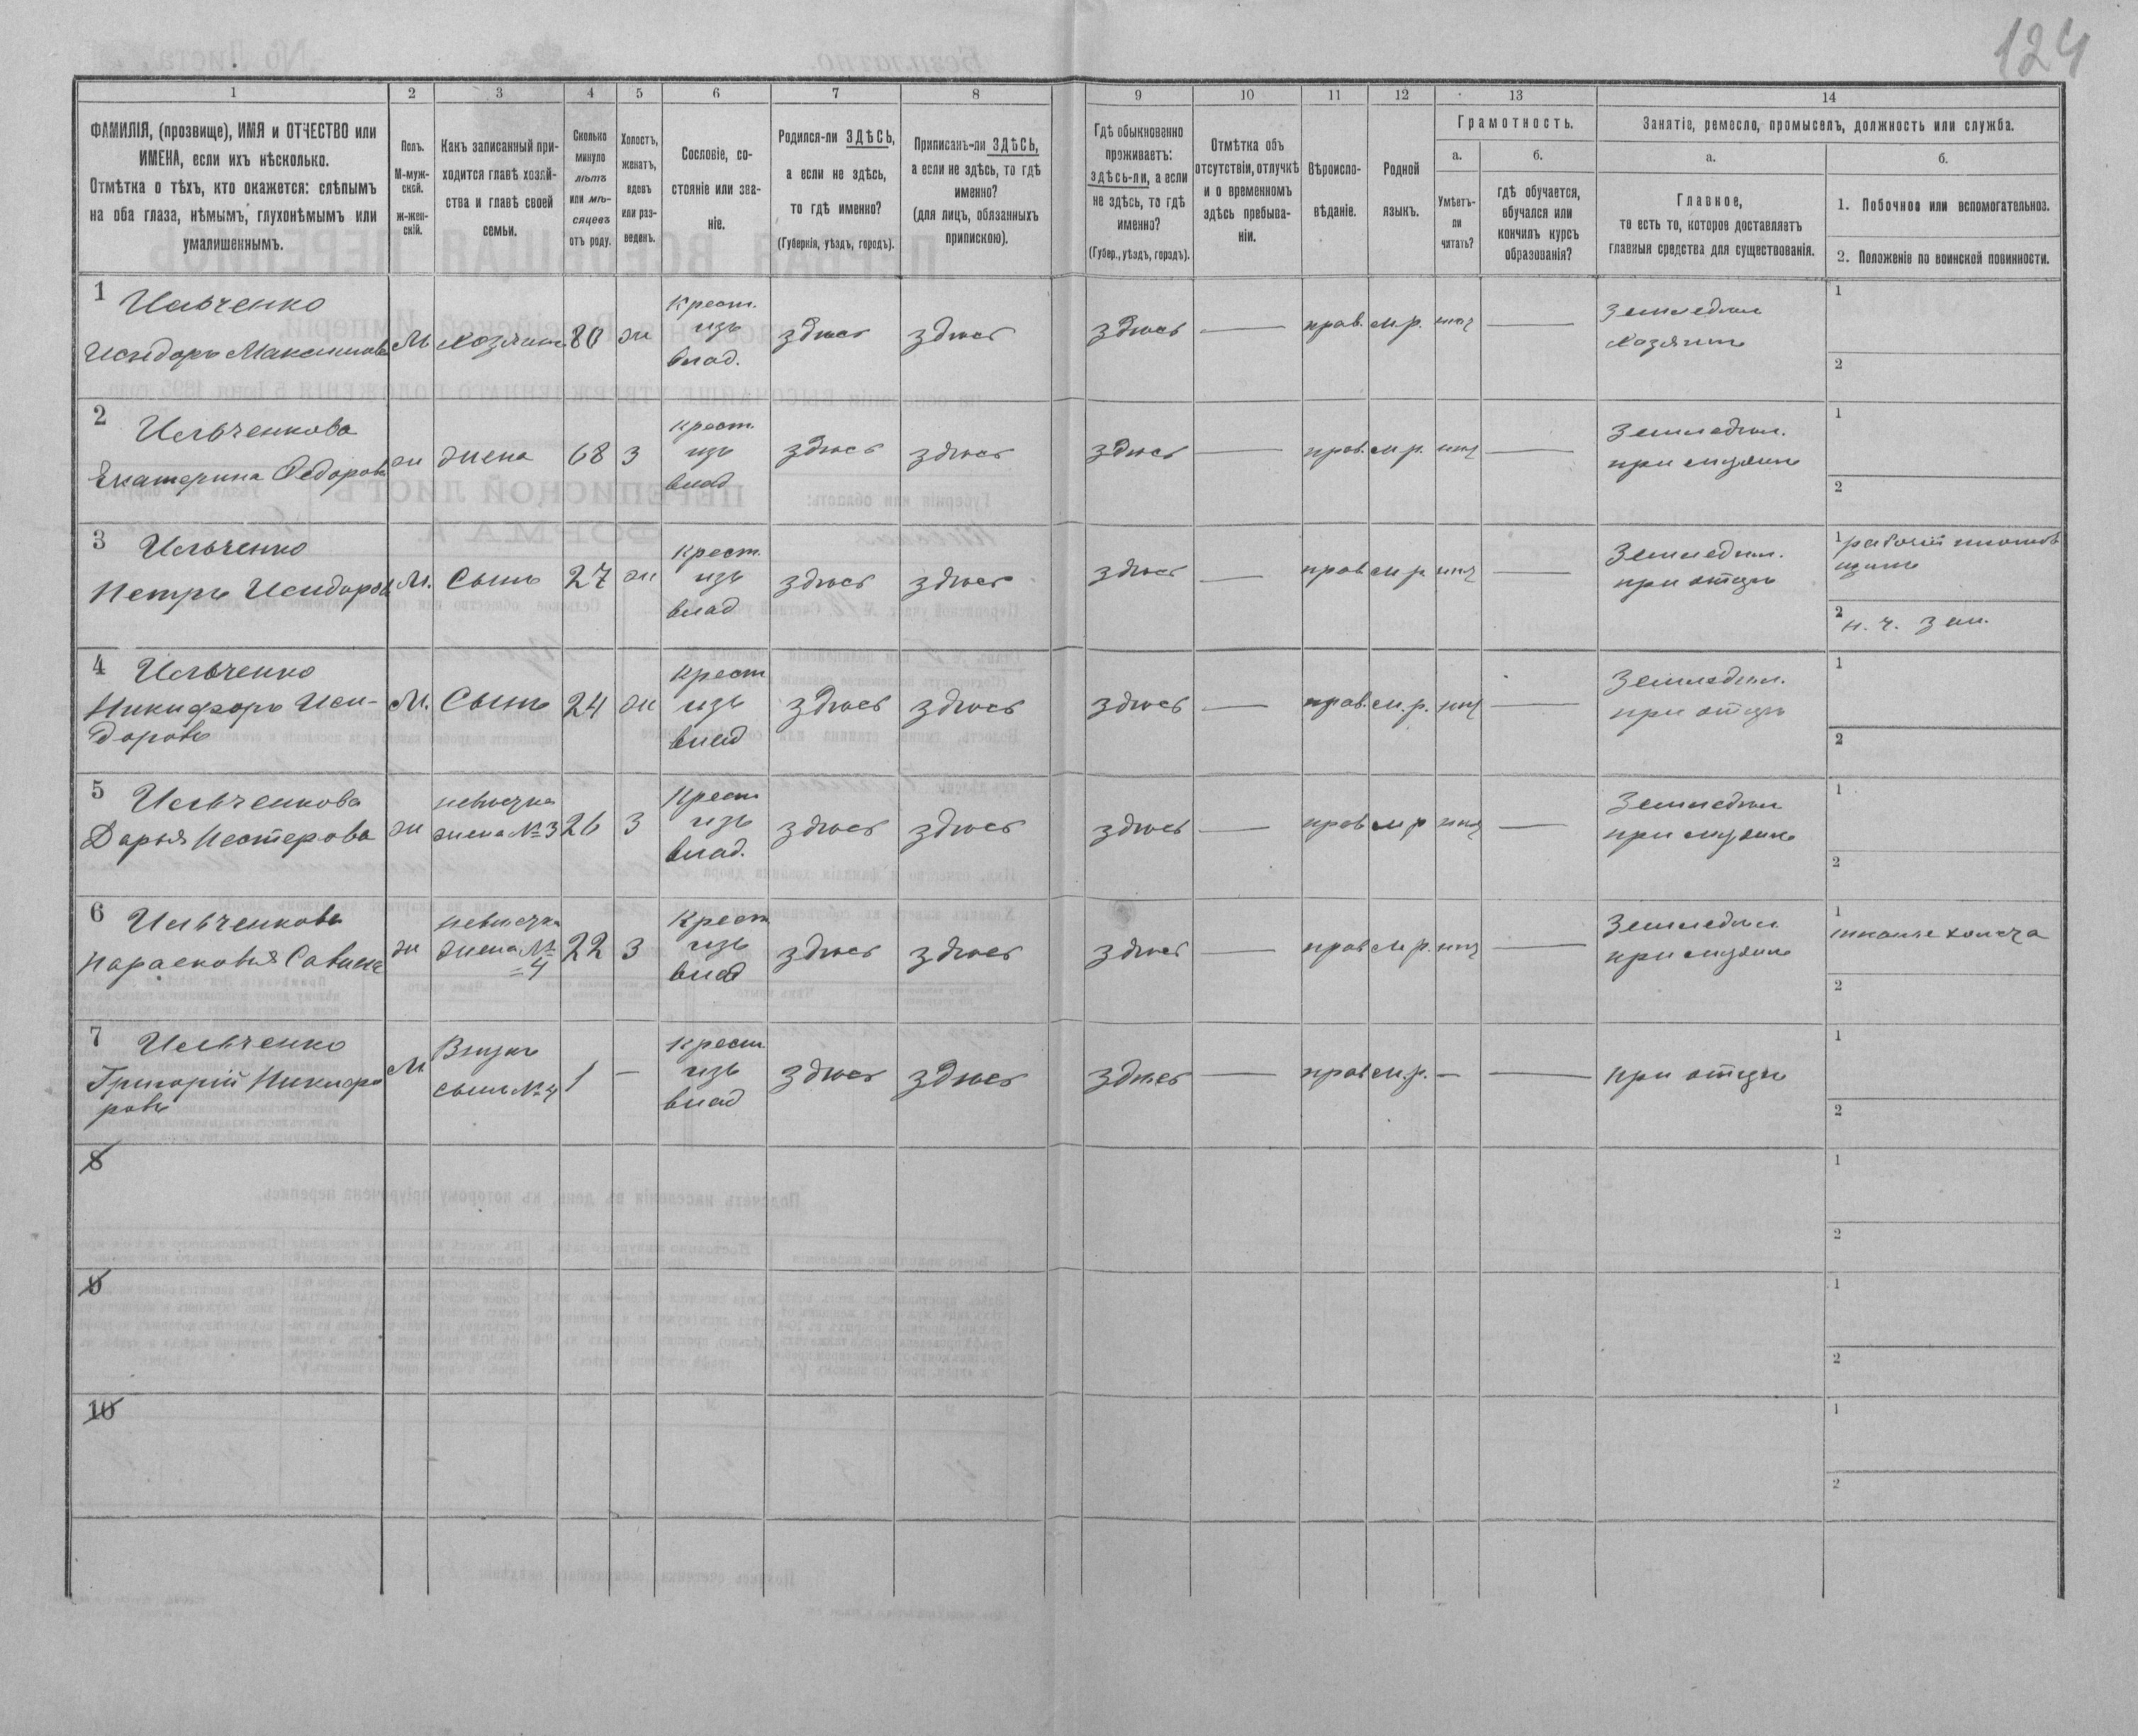 124
1 2 3 4 5 6 7 8 9 10 11 12 13 14
ФАМИЛІЯ, (прозвище), ИМЯ и ОТЧЕСТВО или
ИМЕНА, если ихъ нѣсколько.
Отмѣтка о тѣхъ, кто окажется: слѣпымъ
на оба глаза, нѣмымъ, глухонѣмымъ или
умалишеннымъ.
Полъ.
М-муж-
ской.
ж-жен-
скій.
Какъ записанный при-
ходится главѣ хозяй-
ства и главѣ своей
семьи.
Сколько
минуло
лѣтъ
или мѣ-
сяцевъ
отъ роду.
Холостъ,
женатъ,
вдовъ
или раз-
веденъ.
Сословіе, со-
стояніе или зва-
ніе.
Родился-ли ЗДѢСЬ,
а если не здѣсь,
то гдѣ именно?
(Губернія, уѣздъ, городъ).
Приписанъ-ли ЗДѢСЬ,
а если не здѣсь, то гдѣ
именно?
(для лицъ, обязанныхъ
припискою).
Гдѣ обыкновенно
проживаетъ:
здѣсь-ли, а если
не здѣсь, то гдѣ
именно?
(Губер., уѣздъ, городъ).
Отмѣтка объ
отсутствіи, отлучкѣ
и о временномъ
здѣсь пребыва-
ніи.
Вѣроиспо-
вѣданіе.
Родной
языкъ.
Грамотность.
а.
Умѣетъ-
ли
читать?
б.
гдѣ обучается,
обучался или
кончилъ курсъ
образованія?
Занятіе, ремесло, промыселъ, должность или служба.
а.
Главное,
то есть то, которое доставляетъ
главныя средства для существованія.
б.
1. Побочное или вспомогательное.
2. Положеніе по воинской повинности.
1 Ильченко
Исидоръ Максимовъ М Хозяинъ 80 ж Крест. изъ влад. здѣсь здѣсь здѣсь — прав. м.р. нѣтъ — Земледѣл. Хозяинъ 1
2
2 Ильченкова
Екатерина Федорова ж жена 68 з Крест. изъ влад здѣсь здѣсь здѣсь — прав. м.р. нѣтъ — Земледѣл. при мужѣ 1
2
3 Ильченко
Петръ Исидоровъ М. Сынъ 27 ж Крест. изъ влад здѣсь здѣсь здѣсь — прав м.р. нѣтъ — Земледѣл. при отцѣ 1 рабочій
2 н. ч. зап.
4 Ильченко
Никифоръ Иси-
доровъ М. Сынъ 24 ж Крест изъ влад здѣсь здѣсь здѣсь — прав. м.р. нѣтъ — Земледѣл. при отцѣ 1
2
5 Ильченкова
Дарья Нестерова ж невѣстка жена №3 26 з Крест изъ влад. здѣсь здѣсь здѣсь — прав м р нѣтъ — Земледѣл при мужѣ 1
2
6 Ильченкова
Парасковья Савина ж невѣстка жена № 4 22 з Крест изъ влад здѣсь здѣсь здѣсь — прав м.р. нѣтъ — Земледѣл при мужѣ 1 тканье холста
2
7 Ильченко
Григорій Никифо
ровъ М Внукъ сынъ №4 1 — Крест изъ влад здѣсь здѣсь здѣсь — прав м.р. — — при отцѣ 1
2
8 1
2
9 1
2
10 1
2